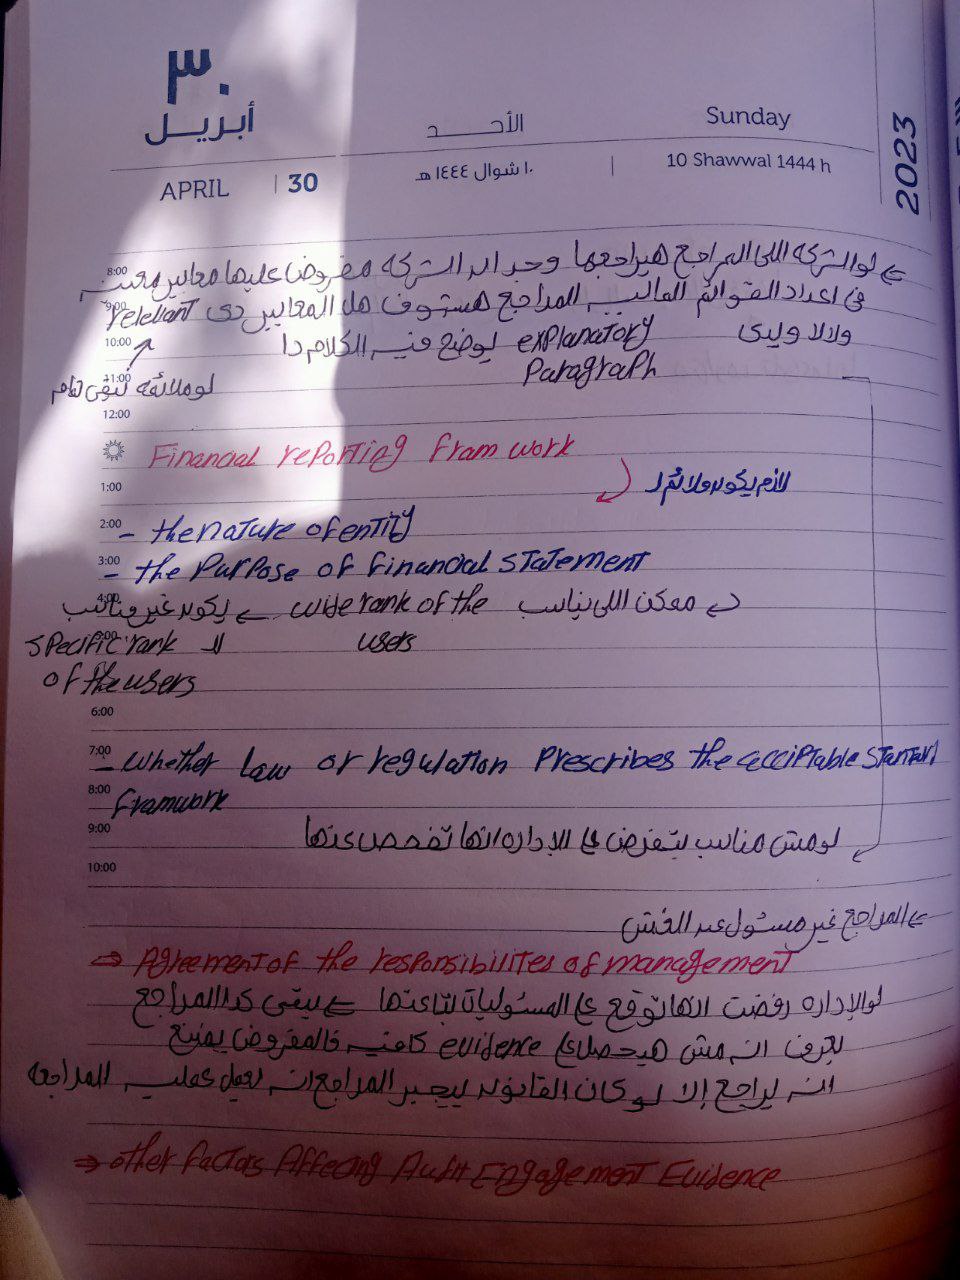 ٣٠
أبريل
الأحد
Sunday
2023
APRIL | 30
١٠ شوال ١٤٤٤ هـ
10 Shawwal 1444 h
8:00
لو الشركه اللى المراجع هيراجعها وجد ان الشركه مفروض عليها معايير معينه
9:00
فى اعداد القوائم الماليه المراجع هيشوف هل المعايير دى relevant
10:00
ولا لا ويبدى explanatory Paragraph يوضح فيه الكلام دا
11:00
لو ملائمه تبقى تمام
12:00
Financial reporting fram work
1:00
لازم يكون ملائم لـ
2:00
- the nature of entity
3:00
- the Purpose of financial statement
4:00
ممكن اللى يناسب wide rank of the users ← يكون غير مناسب
5:00
لـ specific rank
of the users
6:00
7:00
- whether law or regulation Prescribes the acciptable
8:00
framwork
9:00
لو مش مناسب يتفرض على الإداره انها تفصح عنها
10:00
← المراجع غير مسئول عن الغش
⇒ Agreement of the responsibilites of management
لو الإداره رفضت انها توقع على المسئوليات بتاعتها ← يبقى كدا المراجع
يعرف انه مش هيحصل على evidence كافيه فالمفروض يمتنع
انه يراجع إلا لو كان القانون يجبر المراجع انه يعمل عمليه المراجعه
⇒ other factors Affecing Audit Engagement Evidence